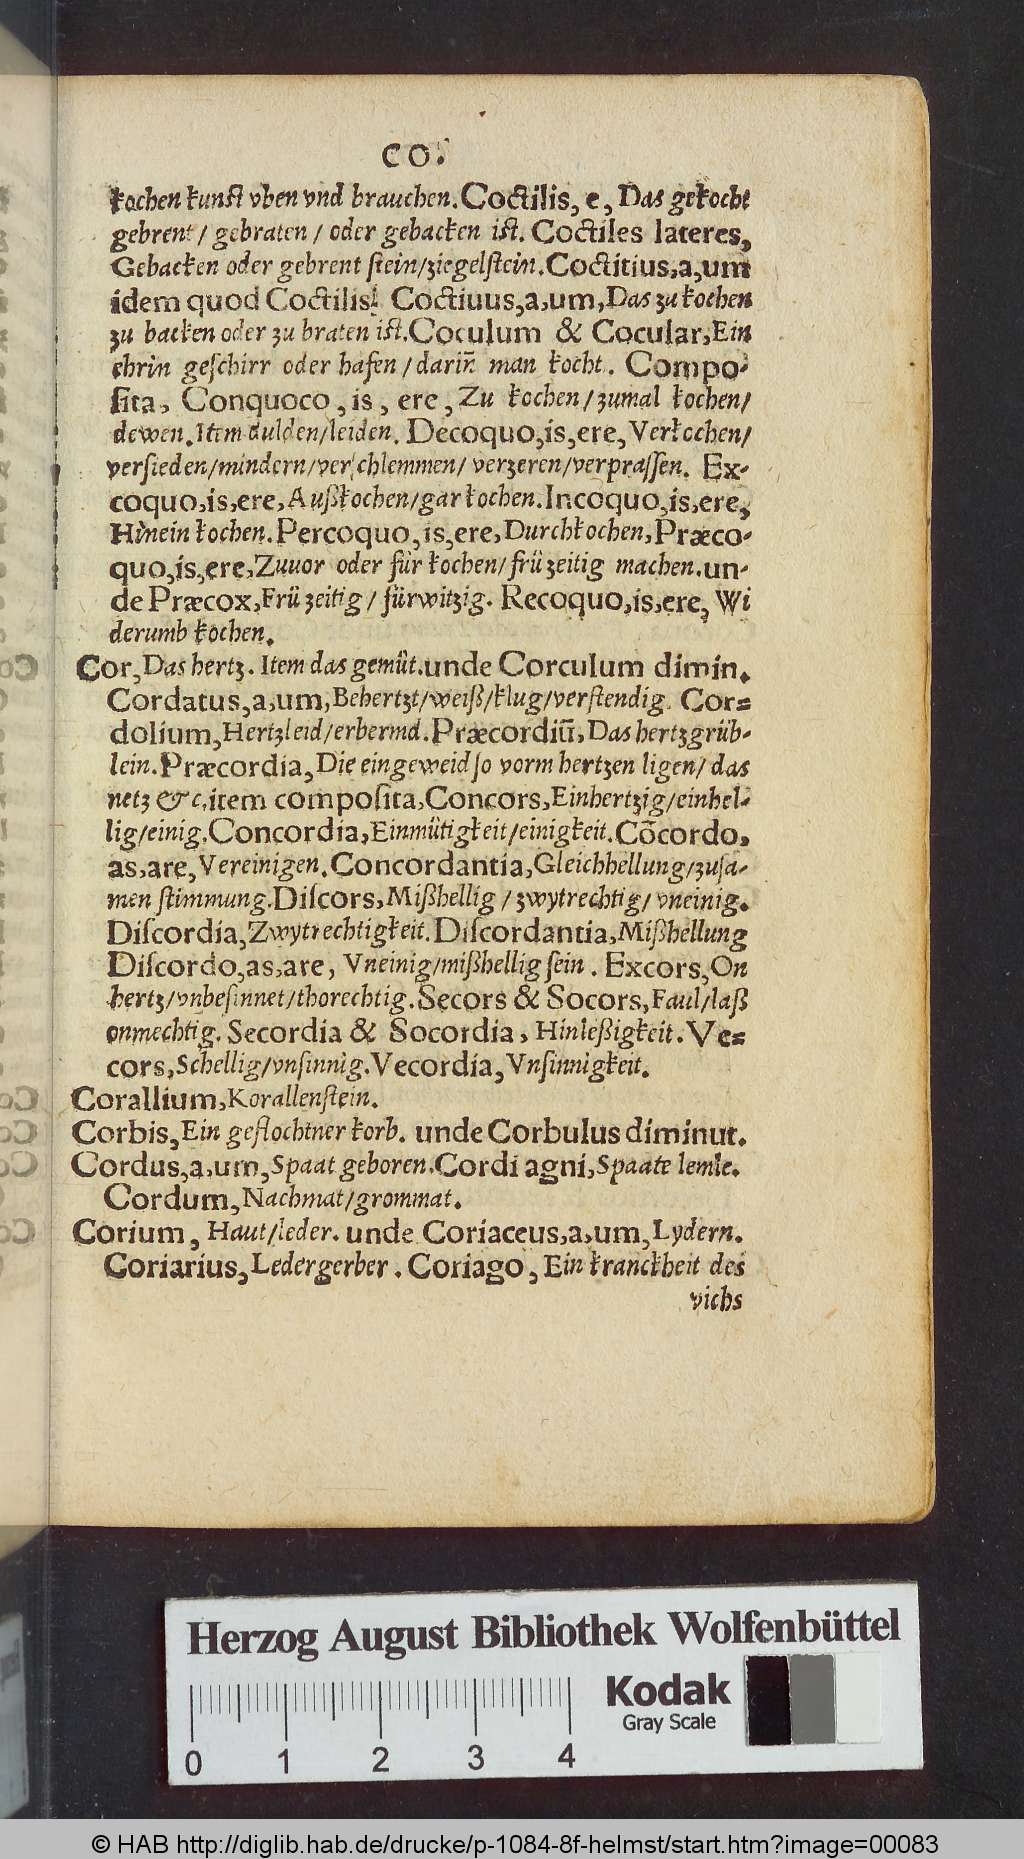 CO.
kochen kunst vben vnd brauchen. Coctilis, e, Das gekocht
gebrent/ gebraten/ oder gebacken ist. Coctiles lateres,
Gebacken oder gebrent stein/ziegelstein. Coctitius,a,um
idem quod Coctilis. Coctiuus,a,um, Das zu kochen
zu backen oder zu braten ist. Coculum & Cocular, Ein
ehrin geschirr oder hafen/ darin̄ man kocht. Compo-
sita, Conquoco, is, ere, Zu kochen/zumal kochen/
dewen. Item dulden/leiden. Decoquo,is,ere, Verkochen/
versieden/mindern/verschlemmen/ verzeren/verprassen. Ex-
coquo,is,ere, Außkochen/gar kochen. Incoquo,is,ere,
Hinein kochen. Percoquo,is,ere, Durchkochen, Præco-
quo,is,ere, Zuuor oder für kochen/ frü zeitig machen. un-
de Præcox, Frü zeitig/ fürwitzig. Recoquo,is,ere, Wi
derumb kochen.
Cor, Das hertz. Item das gemüt. unde Corculum dimin.
Cordatus,a,um, Behertzt/weiß/klug/verstendig. Cor=
dolium, Hertzleid/erbermd. Præcordiū, Das hertzgrüb-
lein. Præcordia, Die eingeweid so vorm hertzen ligen/ das
netz &c. item composita, Concors, Einhertzig/einhel-
lig/einig. Concordia, Einmütigkeit/einigkeit. Cōcordo,
as,are, Vereinigen. Concordantia, Gleichhellung/zusa-
men stimmung. Discors, Mißhellig/ zwytrechtig/ vneinig.
Discordia, Zwytrechtigkeit. Discordantia, Mißhellung
Discordo,as,are, Vneinig/mißhellig sein. Excors, On
hertz/vnbesinnet/thorechtig. Secors & Socors, Faul/laß
onmechtig. Secordia & Socordia, Hinleßigkeit. Ve=
cors, Schellig/vnsinnig. Vecordia, Vnsinnigkeit.
Corallium, Korallenstein.
Corbis, Ein geflochtner korb. unde Corbulus diminut.
Cordus,a,um, Spaat geboren. Cordi agni, Spaate lemle.
Cordum, Nachmat/grommat.
Corium, Haut/leder. unde Coriaceus,a,um, Lydern.
Coriarius, Ledergerber. Coriago, Ein kranckheit des
vichs
Herzog August Bibliothek Wolfenbüttel
Kodak
Gray Scale
0 1 2 3 4
© HAB http://diglib.hab.de/drucke/p-1084-8f-helmst/start.htm?image=00083